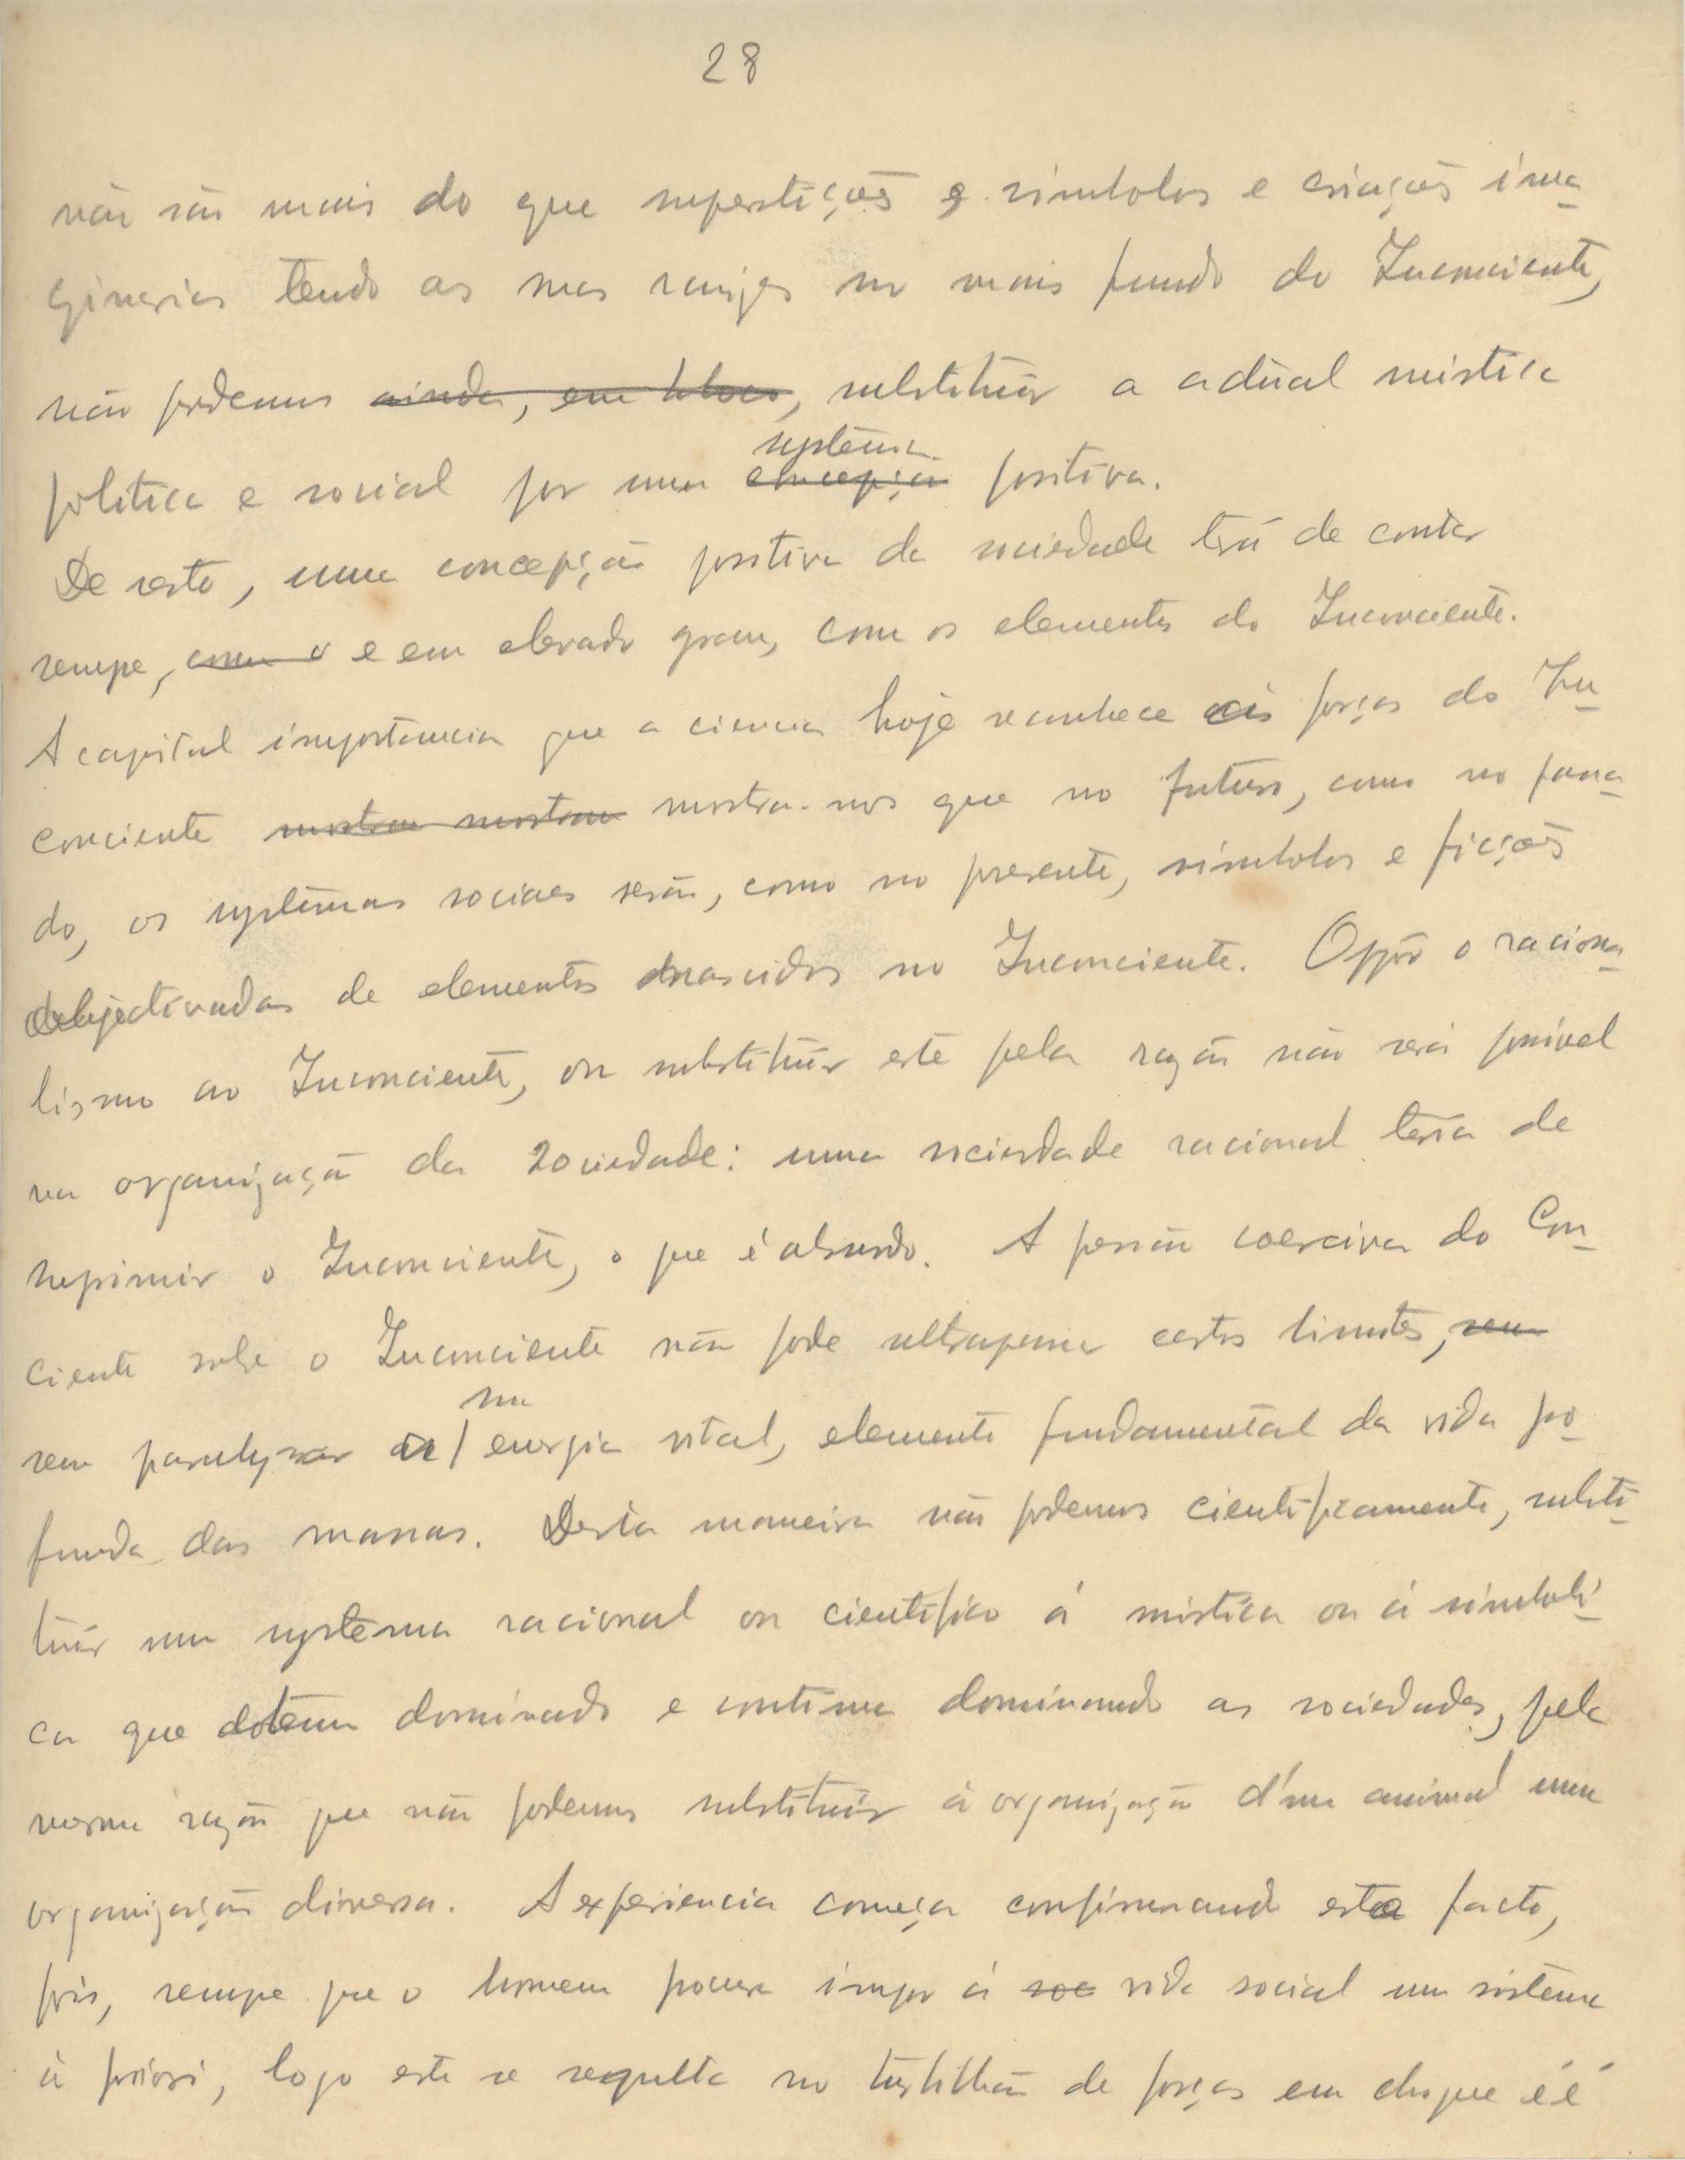 28
não são mais do que superstições e simbolos e criações ima-
ginarias tendo as suas raizes no mais fundo do Inconciente,
não podemos ainda, em bloco, substituír a actúal mistica
systema
politica e social por uma concepção positiva.
De resto, uma concepção positiva da sociedade terá de contar
sempe, com o e em elevado grau, com os elementos do Inconciente.
A capital importancia que a ciencia hoje reconhece ás forças do In-
conciente mostram mostram mostra-nos que no futuro, como no passa-
do, os systemas sociaes serão, como no presente, símbolos e ficções
objectivadas de elementos nascidos no Inconciente. Oppôr o raciona-
lismo ao Inconciente, ou substituír este pela razão não será possivel
na organização da Sociedade: uma sociedade racional teria de
suprimir o Inconciente, o que é absurdo. A pressão coerciva do Con-
ciente sobre o Inconciente não pode ultrapassar certos limites, sem
sua
sem paralyzar a energia vital, elemento fundamental da vida pro-
funda das massas. Desta maneira não podemos cientificamente, substi-
tuír um systema racional ou cientifico á mistica ou á símboli-
ca que tem dominado e continua dominando as sociedades, pela
mesma razão que não podemos substituír á organização d'um animal uma
organização diversa. A experiencia começa confirmando este facto,
pois, sempe que o homem procura impor á soc vida social um sistema
à priori, logo este se sepulta no turbilhão de forças em choque é é